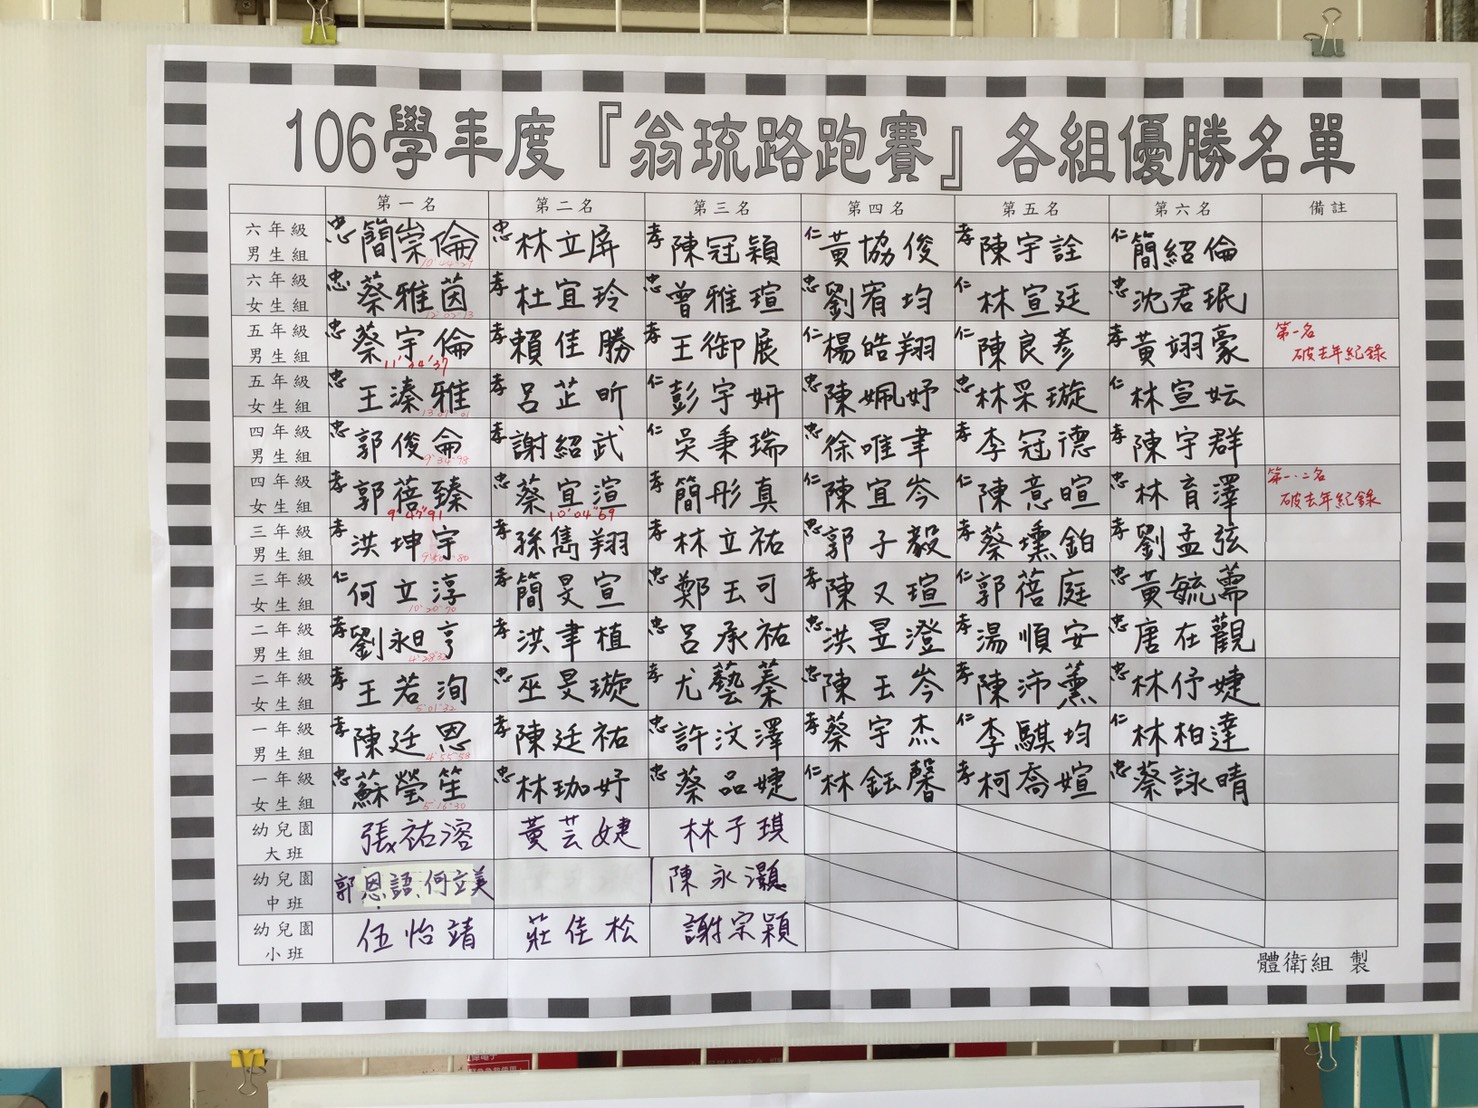 106學年度『翁琉路跑賽』各組優勝名單
第一名 第二名 第三名 第四名 第五名 第六名 備註
六年級男生組 忠 簡崇倫 忠 林立屏 孝 陳冠穎 仁 黃協俊 孝 陳宇詮 仁 簡紹倫
六年級女生組 忠 蔡雅茵 孝 杜宜玲 忠 曾雅瑄 忠 劉宥均 仁 林宣廷 忠 沈君珉
五年級男生組 忠 蔡宇倫 11'24"37 孝 賴佳勝 孝 王御展 仁 楊皓翔 仁 陳良彥 孝 黃翊豪 第一名 破去年紀錄
五年級女生組 忠 王溱雅 孝 呂芷昕 仁 彭宇妍 忠 陳姵妤 忠 林采璇 仁 林宣妘
四年級男生組 忠 郭俊侖 9'34"98 孝 謝紹武 仁 吳秉瑞 忠 徐唯聿 孝 李冠德 孝 陳宇群
四年級女生組 孝 郭蓓臻 9'47"91 忠 蔡宜渲 10'04"69 孝 簡彤真 仁 陳宜岑 仁 陳意暄 忠 林育澤 第一、二名 破去年紀錄
三年級男生組 孝 洪坤宇 孝 孫雋翔 孝 林立祐 忠 郭子毅 孝 蔡壎鉑 孝 劉孟弦
三年級女生組 仁 何立淳 10'20"70 孝 簡旻宣 忠 鄭玉可 孝 陳又瑄 仁 郭蓓庭 忠 黃毓薷
二年級男生組 孝 劉昶亨 4'28"32 孝 洪聿植 忠 呂承祐 忠 洪昱澄 孝 湯順安 忠 唐在觀
二年級女生組 孝 王若洵 5'01"22 忠 巫旻璇 孝 尤藝蓁 忠 陳玉岑 孝 陳沛薰 忠 林伃婕
一年級男生組 孝 陳廷恩 4'55"58 孝 陳廷祐 忠 許汶澤 孝 蔡宇杰 仁 李騏均 仁 林柏達
一年級女生組 忠 蘇瑩笙 5'16"30 忠 林珈妤 忠 蔡品婕 仁 林鈺馨 孝 柯喬媗 忠 蔡詠晴
幼兒園大班 張祐溶 黃芸婕 林子琪
幼兒園中班 郭恩語、何立美 陳永灝
幼兒園小班 伍怡靖 莊佳松 謝宗穎
體衛組 製